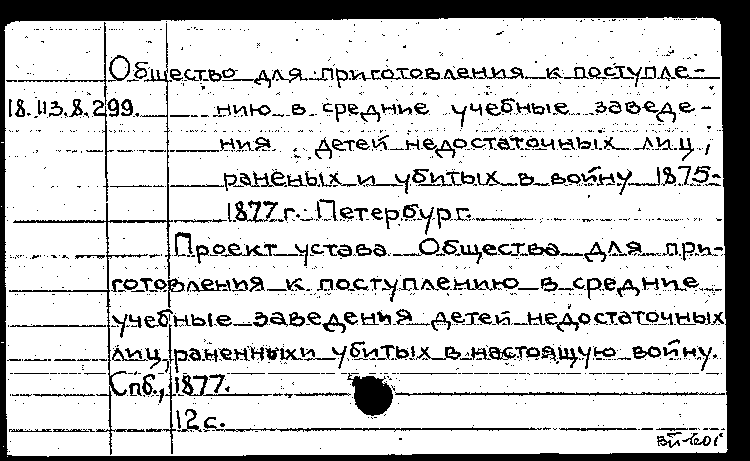 Общество для приготовления к поступле-
18.113.8.299. нию в средние учебные заведе-
ния детей недостаточных лиц,
раненых и убитых в войну 1875-
1877 г. Петербург.
Проект устава Общества для при-
готовления к поступлению в средние
учебные заведения детей недостаточных
лиц, раненных и убитых в настоящую войну.
Спб., 1877.
12 с.